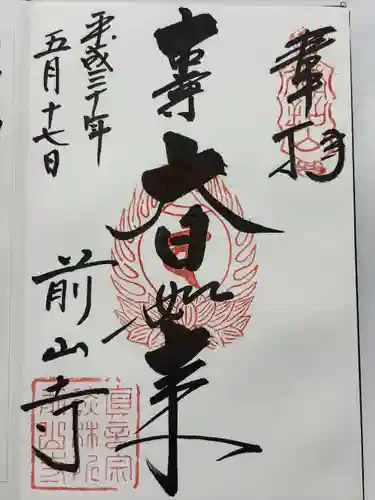 奉拝
本尊
大日如来
前山寺
平成三十年
五月十七日